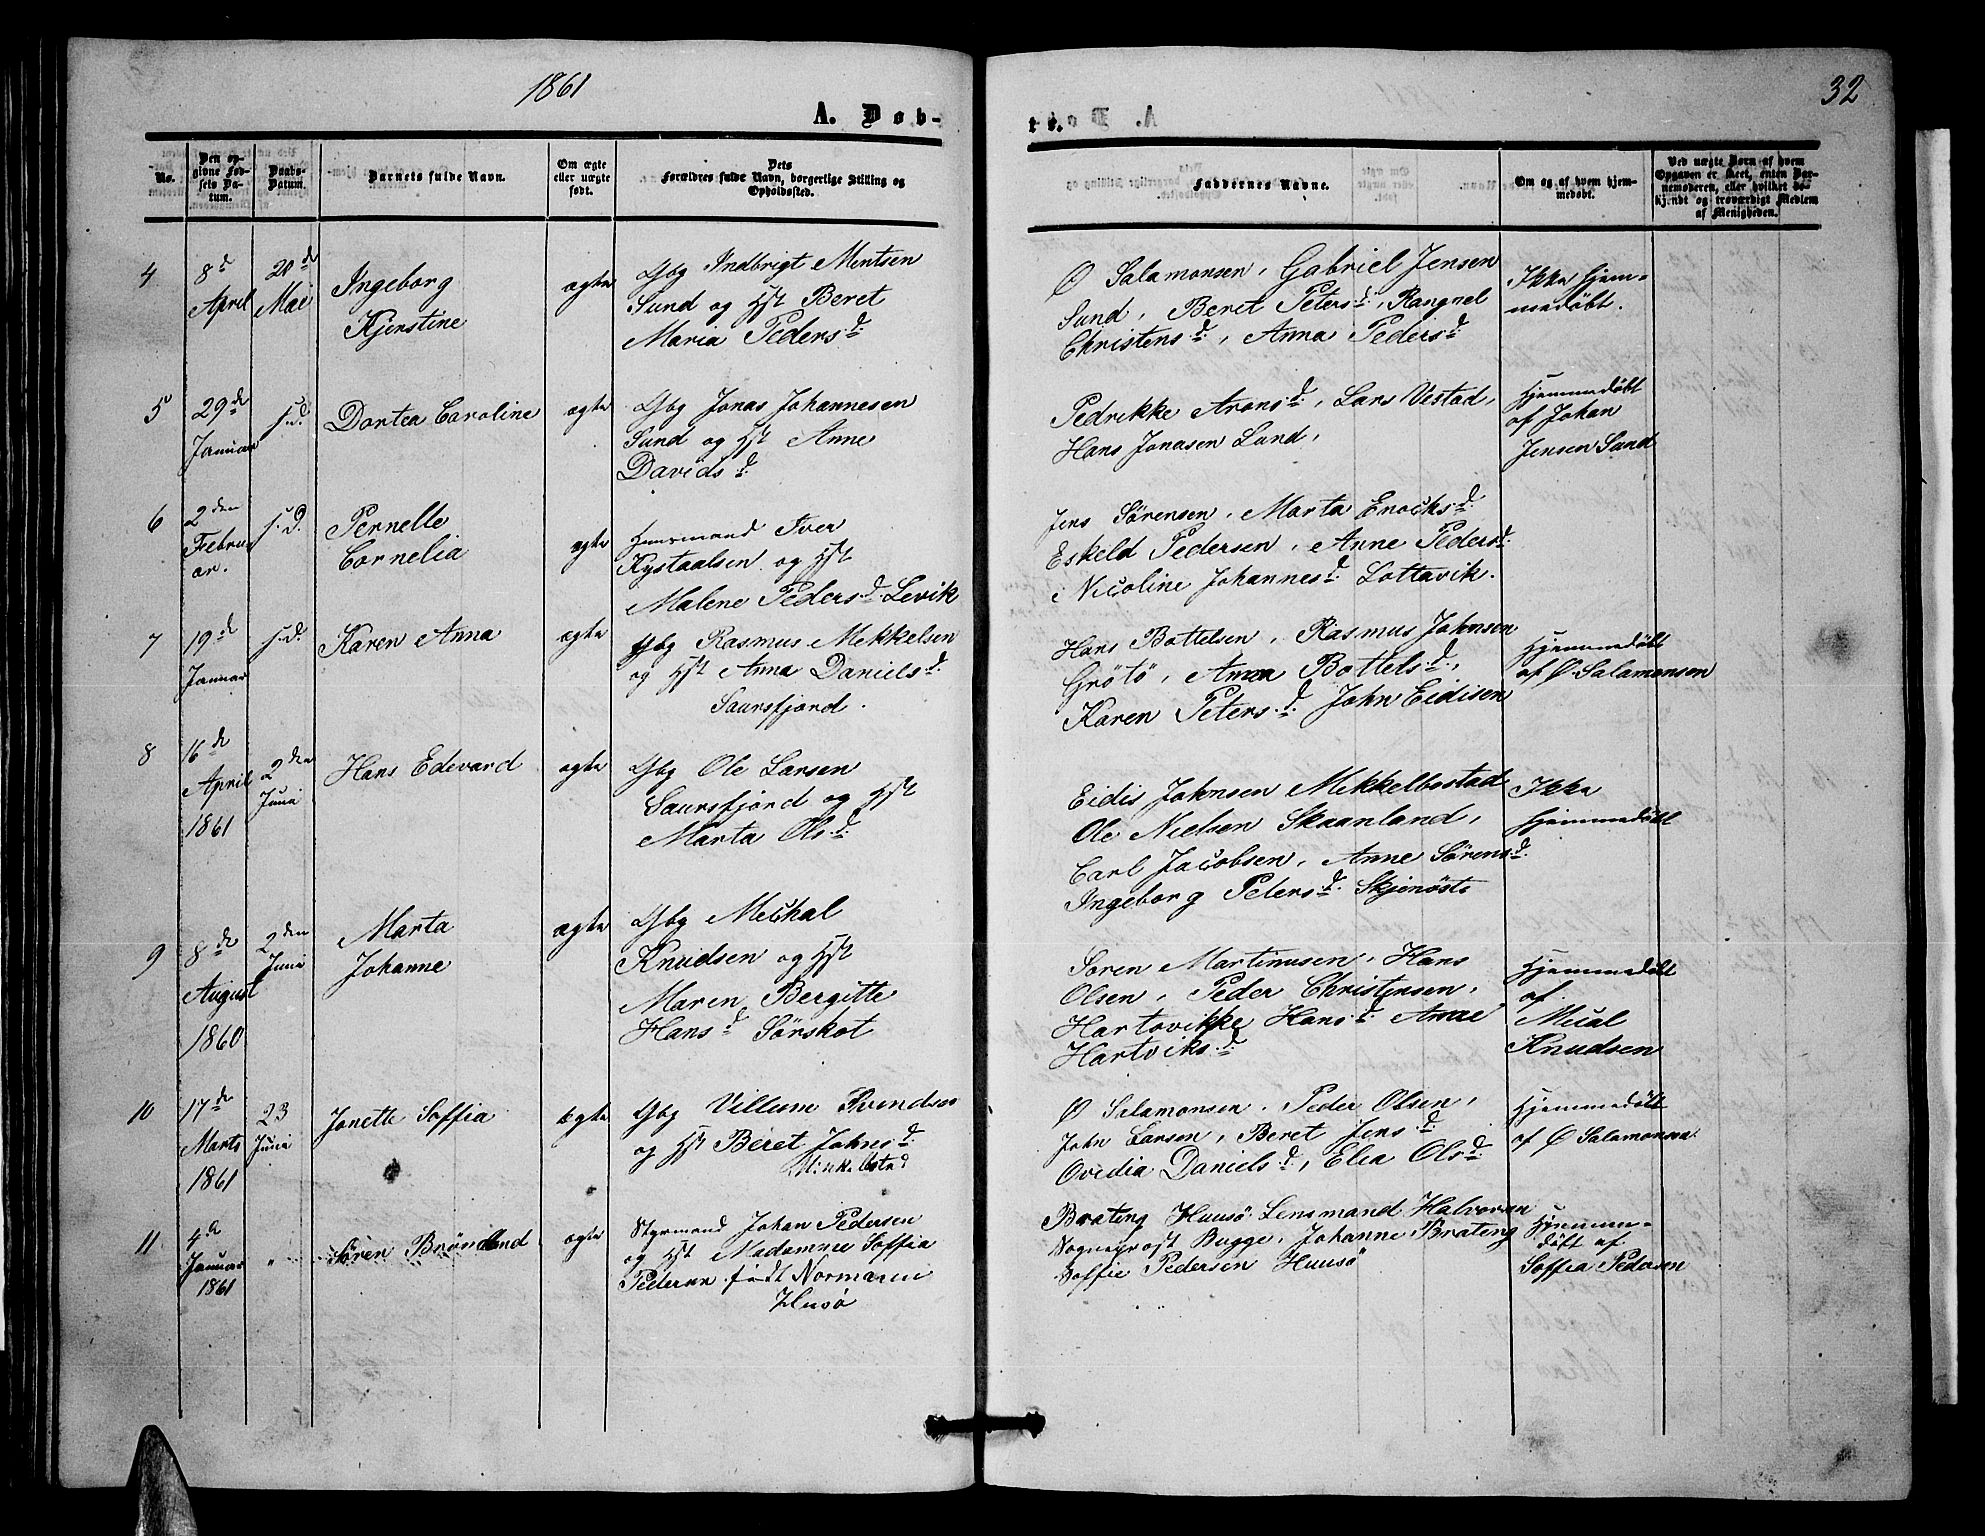 1861
A. Døb-
te.
32
No.
Den op-
givne Fød-
sels Da-
tum.
Daabs-
Datum.
Barnets fulde Navn.
Om ægte
eller uægte
født.
Dets
Forældres fulde Navn, borgerlige Stilling og
Opholdssted.
Faddernes Navne.
Om og af hvem hjem-
medøbt.
Ved uægte Børn af hvem
Opgaven er skeet, enten Bar-
nemoderen, eller hvilket be-
kjendt og troværdigt Medlem
af Menigheden.
4
8d
April
20d
Mai
Ingeborg
Kjerstine
ægte
Gbg Indbrigt Mentsen
Sund og Hst Beret
Maria Pedersd:
Ø Salamonsen, Gabriel Jensen
Sund, Beret Petersd:, Rangnel
Christensd:, Anna Pedersd:
Ikke hjem-
medøbt.
5
29de
Januar
s.d.
Dortea Caroline
ægte
Gbg Jonas Johannesen
Sund og Hst Anne
Davidsd:
Pedrikke Aronsd:, Lars Vestad,
Hans Jonasen Sund,
Hjemmedøbt
af Johan
Jensen Sund
6
2den
Febru-
ar.
s.d.
Pernelle
Cornelia
ægte
Huusmand Iver
Kystaalsen og Hst
Malene Pedersd: Levik
Jens Sørensen, Marta Enocksd:
Eskeld Pedersen, Anne Pedersd:
Nicoline Johannesd: Lottavik.
7
19d
Januar
s.d.
Karen Anna
ægte
Gbg Rasmus Mekkelsen
og Hst Anna Danielsd:
Saursfjord.
Hans Bottelsen, Rasmus Johnsen
Grøtø, Anna Bottelsd:,
Karen Petersd: John Eidisen
Hjemmedøbt
af Ø. Salamonsen
8
16de
April
1861
2den
Juni
Hans Edevard
ægte
Gbg Ole Larsen
Saursfjord og Hst
Marta Olsd:
Eidis Johnsen Mekkelbostad
Ole Nielsen Skaanland,
Carl Jacobsen, Anne Sørensd:
Ingeborg Petersd: Skjenøste
Ikke
hjemmedøbt
9
8de
August
1860
2den
Juni
Marta
Johanne
ægte
Gbg Mechal
Knudsen og Hst
Maren Bergitte
Hansd Sørskot
Soren Martinusen, Hans
Olsen, Peder Christensen,
Hartovikke Hansd: Anne
Hartviksd:
Hjemmedøbt
af
Mical
Knudsen
10
17de
Marts
1861
23
Juni
Jonette Soffia
ægte
Gbg Villum Svendsen
og Hst Beret Johnsd:
Minkelbstad
Ø Salamonsen, Peder Olsen,
John Larsen, Beret Jensd:
Ovedia Danielsd:, Elea Olsd:
Hjemmedøbt
af Ø Salamonsen
11
4d
Januar
1861
"
Søren Brønlund
ægte
Styrmand Johan Pedersen
og Hst Madamme Soffia
Pedersen født Normann
Husø
Brateng Huusø Lensmand Halvorsen
Sogneprost Bugge, Johanne Brateng
Soffie Pedersen Huusø
Hjemme-
døbt af
Soffia Pedersen